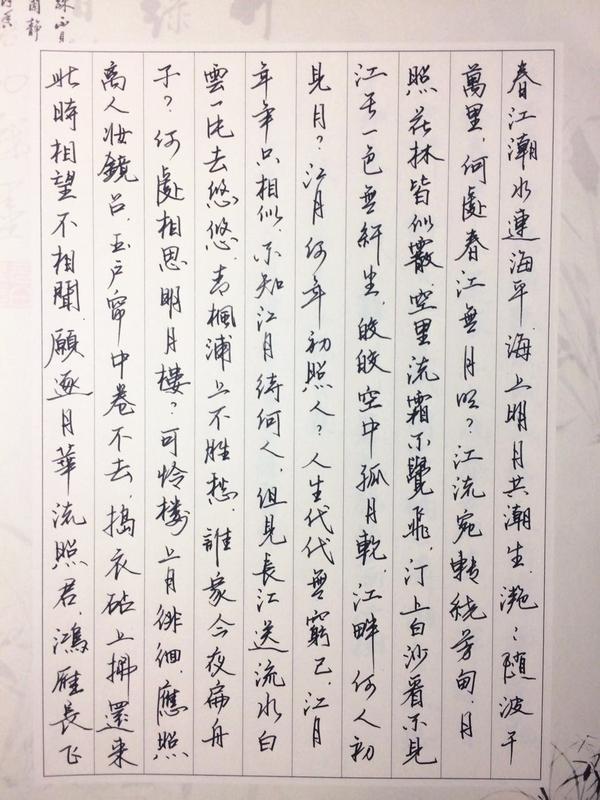 春江潮水連海平，海上明月共潮生，灧：随波千
萬里，何處春江無月明？江流宛轉繞芳甸，月
照花林皆似霰，空里流霜不覺飛，汀上白沙看不見
江天一色無纤尘，皎皎空中孤月輪，江畔何人初
見月？江月何年初照人？人生代代無窮已，江月
年年只相似，不知江月待何人，但見長江送流水白
雲一片去悠悠，青楓浦上不胜愁，誰家今夜扁舟
子？何處相思明月樓？可怜楼上月徘徊，應照
离人妆鏡台，玉户帘中卷不去，搗衣砧上拂還来
此時相望不相聞，願逐月華流照君，鴻雁長飞